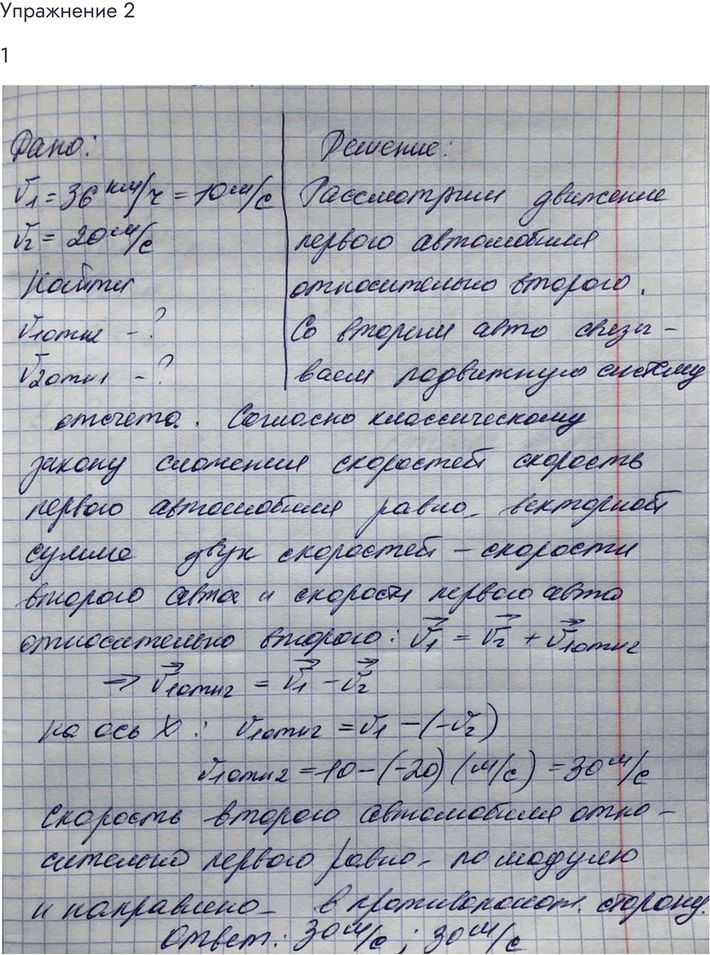 Упражнение 2
1
Дано: Решение:
v1 = 36 км/ч = 10 м/с Рассмотрим движение
v2 = 20 м/с первого автомобиля
Найти относительно второго.
v1отн2 - ? Со вторым авто связы-
v2отн1 - ? ваем подвижную систему
отсчета. Согласно классическому
закону сложения скоростей скорость
первого автомобиля равно_ векторной
сумме двух скоростей - скорости
второго авто и скорости первого авто
относительно второго: v⃗1 = v⃗2 + v⃗1отн2
⇒ v⃗1отн2 = v⃗1 - v⃗2
на ось X: v1отн2 = v1 - (-v2)
v1отн2 = 10 - (-20) (м/с) = 30 м/с
скорость второго автомобиля отно-
сительно первого равно_ по модулю
и направлено_ в противополож. сторону.
Ответ: 30 м/с ; 30 м/с